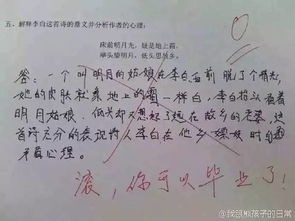 五、解释李白这首诗的意义并分析作者的心理：
床前明月光，疑是地上霜。
举头望明月，低头思故乡。
答：一个叫明月的姑娘在李白面前脱了个精光，
她的皮肤就象地上的霜一样白，李白抬头看着
明月姑娘，低头却又想起了远在故乡的老婆，这
首诗充分的表现诗人李白在他乡嫖妓时的
矛盾心理。
滚，你可以毕业了！
@我跟熊孩子的日常